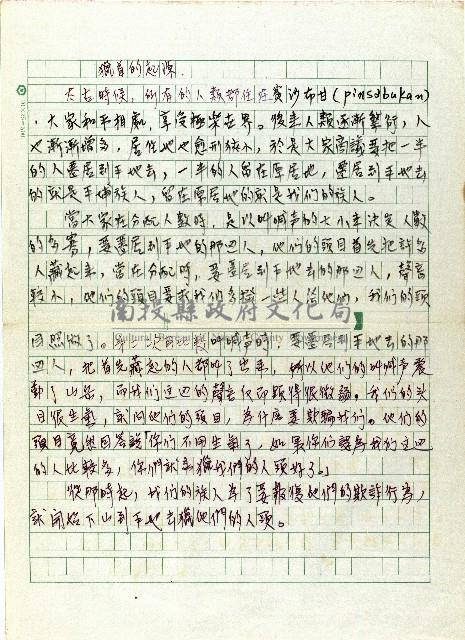 獵首的起源.
太古時候，所有的人類都住在賽沙布甘(pinsabukan)
，大家和平相處，享受極樂世界。後來人類逐漸繁衍，人
也漸漸增多，居住地也愈形狹小，於是大家商議要把一半
的人遷居到平地去，一半的人留在原居地，遷居到平地去
的就是平埔族人，留在原居地的就是我們的族人。
當大家在分配人數時，是以叫喊声的大小來決定人數
的多寡，要遷居到平地的那边人，他們的頭目首先把許多
人藏起來，當在分配時，要遷居到平地去的那边人，聲音
較小，他們的頭目要求我們多撥一些人給他們，我們的頭
目照做了。第二次再比較叫喊声時，要遷居到平地去的那
边人，把首先藏起的人都叫了出來，所以他们的叫喊声震
動了山岳，而我们这边的聲音反而顯得很微弱。我们的头
目很生氣，就问他们的頭目，為什么要欺騙我们。他们的
頭目竟然回答說「你们不用生氣了，如果你们認為我们这边
的人比較多，你們就來獵我們的人頭好了。」
從那時起，我们的族人為了要報復他們的欺詐行為，
就開始下山到平地去獵他們的人頭。
南投縣政府文化局